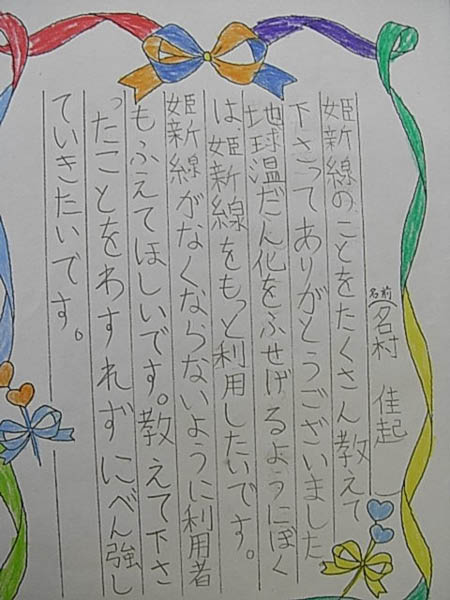 名前 名村 佳起
姫新線のことをたくさん教えて
下さってありがとうございました。
地球温だん化をふせげるようにぼく
は、姫新線をもっと利用したいです。
姫新線がなくならないように利用者
もふえてほしいです。教えて下さ
ったことをわすれずにべん強し
ていきたいです。